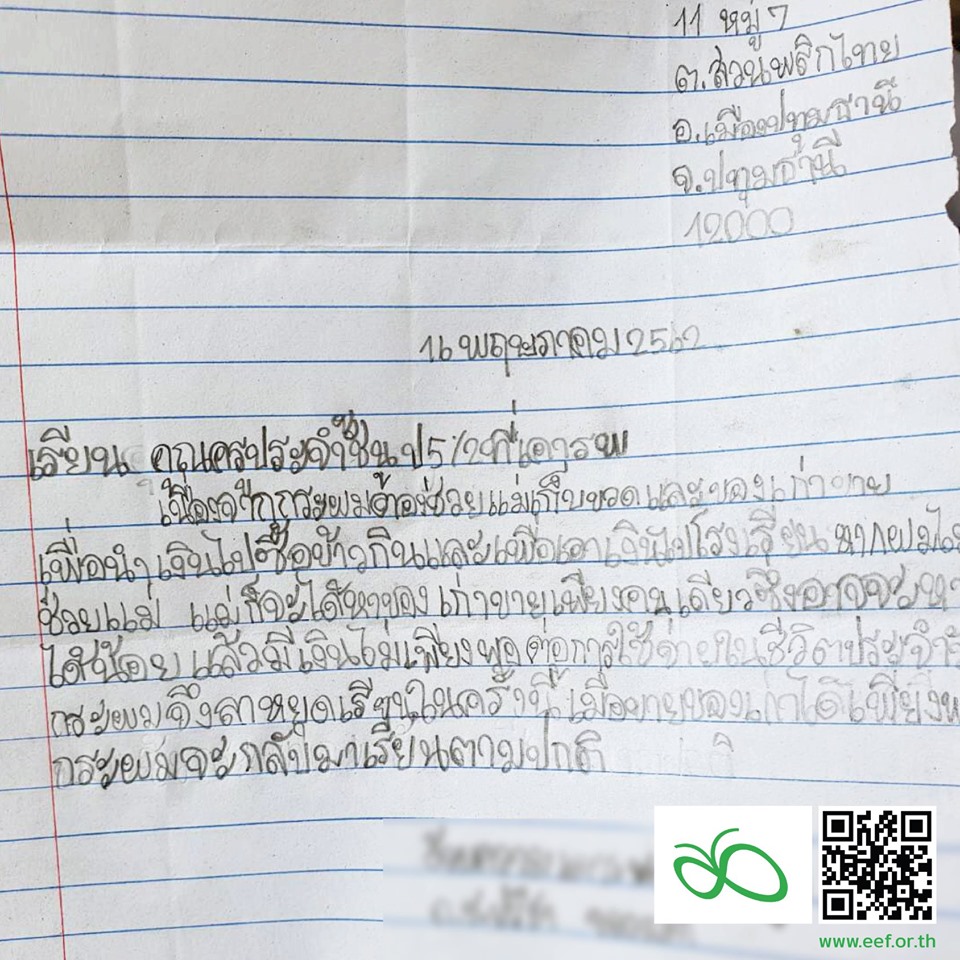 11 หมู่ 7
ต.สวนพริกไทย
อ.เมืองปทุมธานี
จ.ปทุมธานี
12000
16 พฤษภาคม 2562
เรียน คุณครูประจำชั้น ป5/2 ที่เคารพ
เนื่องจากกระผมต้องช่วยแม่เก็บขวดและของเก่าขาย
เพื่อนำเงินไปซื้อข้าวกินและเพื่อเอาเงินไปโรงเรียน หากผมไม่
ช่วยแม่ แม่ก็จะได้หาของเก่าขายเพียงคนเดียวซึ่งอาจจะหา
ได้น้อย แล้วมีเงินไม่เพียงพอต่อการใช้จ่ายในชีวิตประจำ
กระผมจึงลาหยุดเรียนในครั้งนี้ เมื่อขายของเก่าได้เพียงพ
กระผมจะกลับมาเรียนตามปกติ
www.eef.or.th